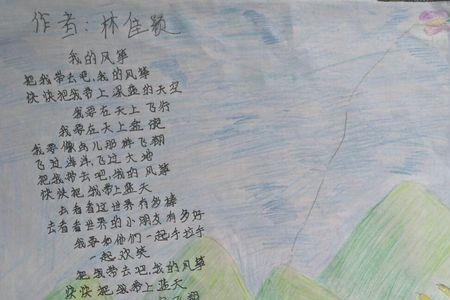 作者:林佳颖
我的风筝
把我带去吧,我的风筝
快快把我带上深蓝的天空
我要在天上飞行
我要在天上盘旋
我要像鸟儿那样飞翔
飞过海洋,飞过大地
把我带去吧,我的风筝
快快把我带上蓝天
去看看这世界有多棒
去看看世界的小朋友有多好
我要和他们一起手拉手
一起欢笑
把我带去吧,我的风筝
快快把我带上蓝天
飞翔